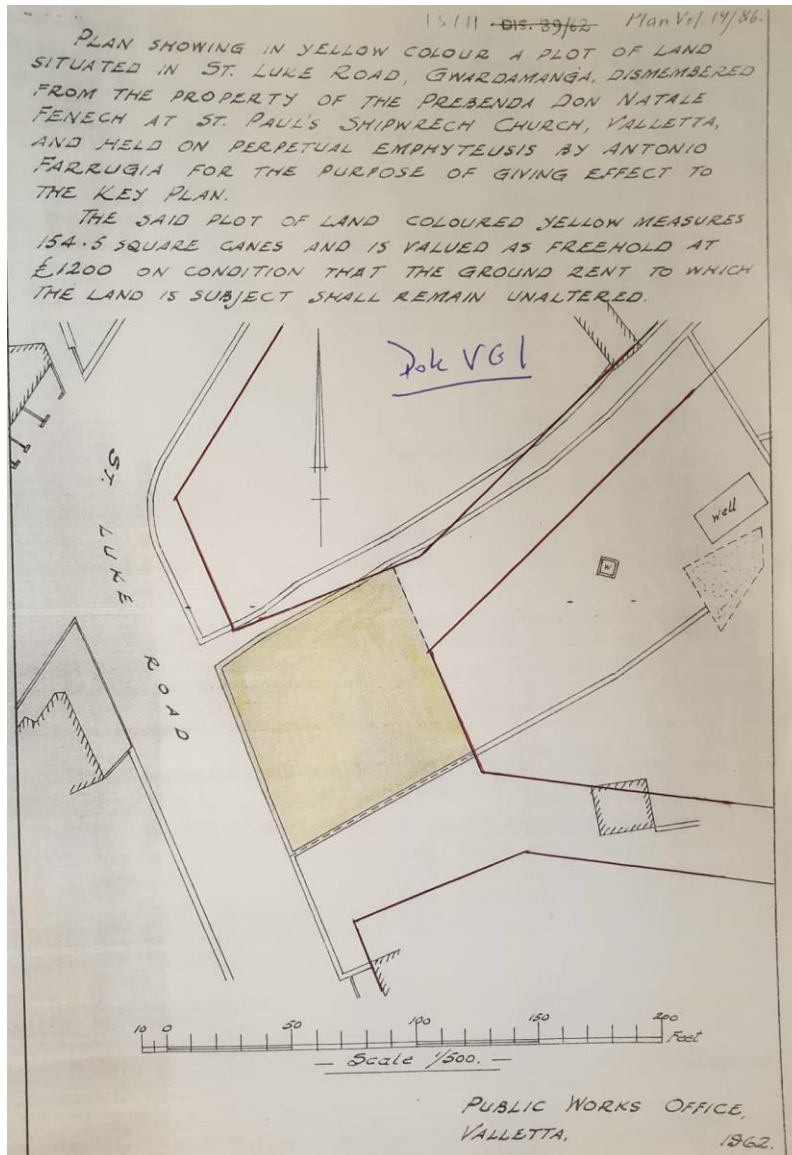 15/11 DIS. 39/62 Plan Vol. 19/86.
PLAN SHOWING IN YELLOW COLOUR A PLOT OF LAND
SITUATED IN ST. LUKE ROAD, GWARDAMANGA, DISMEMBERED
FROM THE PROPERTY OF THE PREBENDA DON NATALE
FENECH AT ST. PAUL'S SHIPWRECH CHURCH, VALLETTA,
AND HELD ON PERPETUAL EMPHYTEUSIS BY ANTONIO
FARRUGIA FOR THE PURPOSE OF GIVING EFFECT TO
THE KEY PLAN.
THE SAID PLOT OF LAND COLOURED YELLOW MEASURES
154.5 SQUARE CANES AND IS VALUED AS FREEHOLD AT
£1200 ON CONDITION THAT THE GROUND RENT TO WHICH
THE LAND IS SUBJECT SHALL REMAIN UNALTERED.
Dok VG1
ST. LUKE ROAD
well
W
10 0 50 100 150 200 Feet
— Scale 1/500. —
PUBLIC WORKS OFFICE,
VALLETTA. 1962.